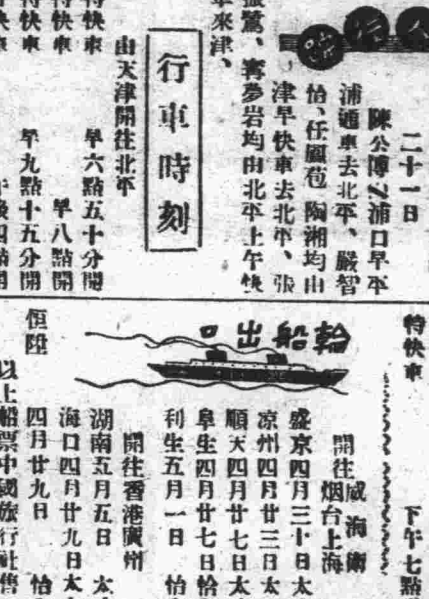 二十一日
陳公博乙浦口早平
浦通車去北平、嚴智
怡、任鳳苞 陶湘均由
津早快車去北平、張
振鷺、寗夢岩均由北平上午快
車來津、
行車時刻
由天津開往北平
特快車 早六點五十分開
特快車 早八點開
特快車 早九點十五分開
特快車 下午七點
輪船出口
開往威海衛
烟台上海
盛京四月三十日太
凉州四月廿三日太
順天四月廿七日太
阜生四月廿七日怡
利生五月一日 怡
開往香港廣州
湖南五月五日 太
海口四月廿九日太
恒陞 四月廿九日 怡
以上船票中國旅行社售